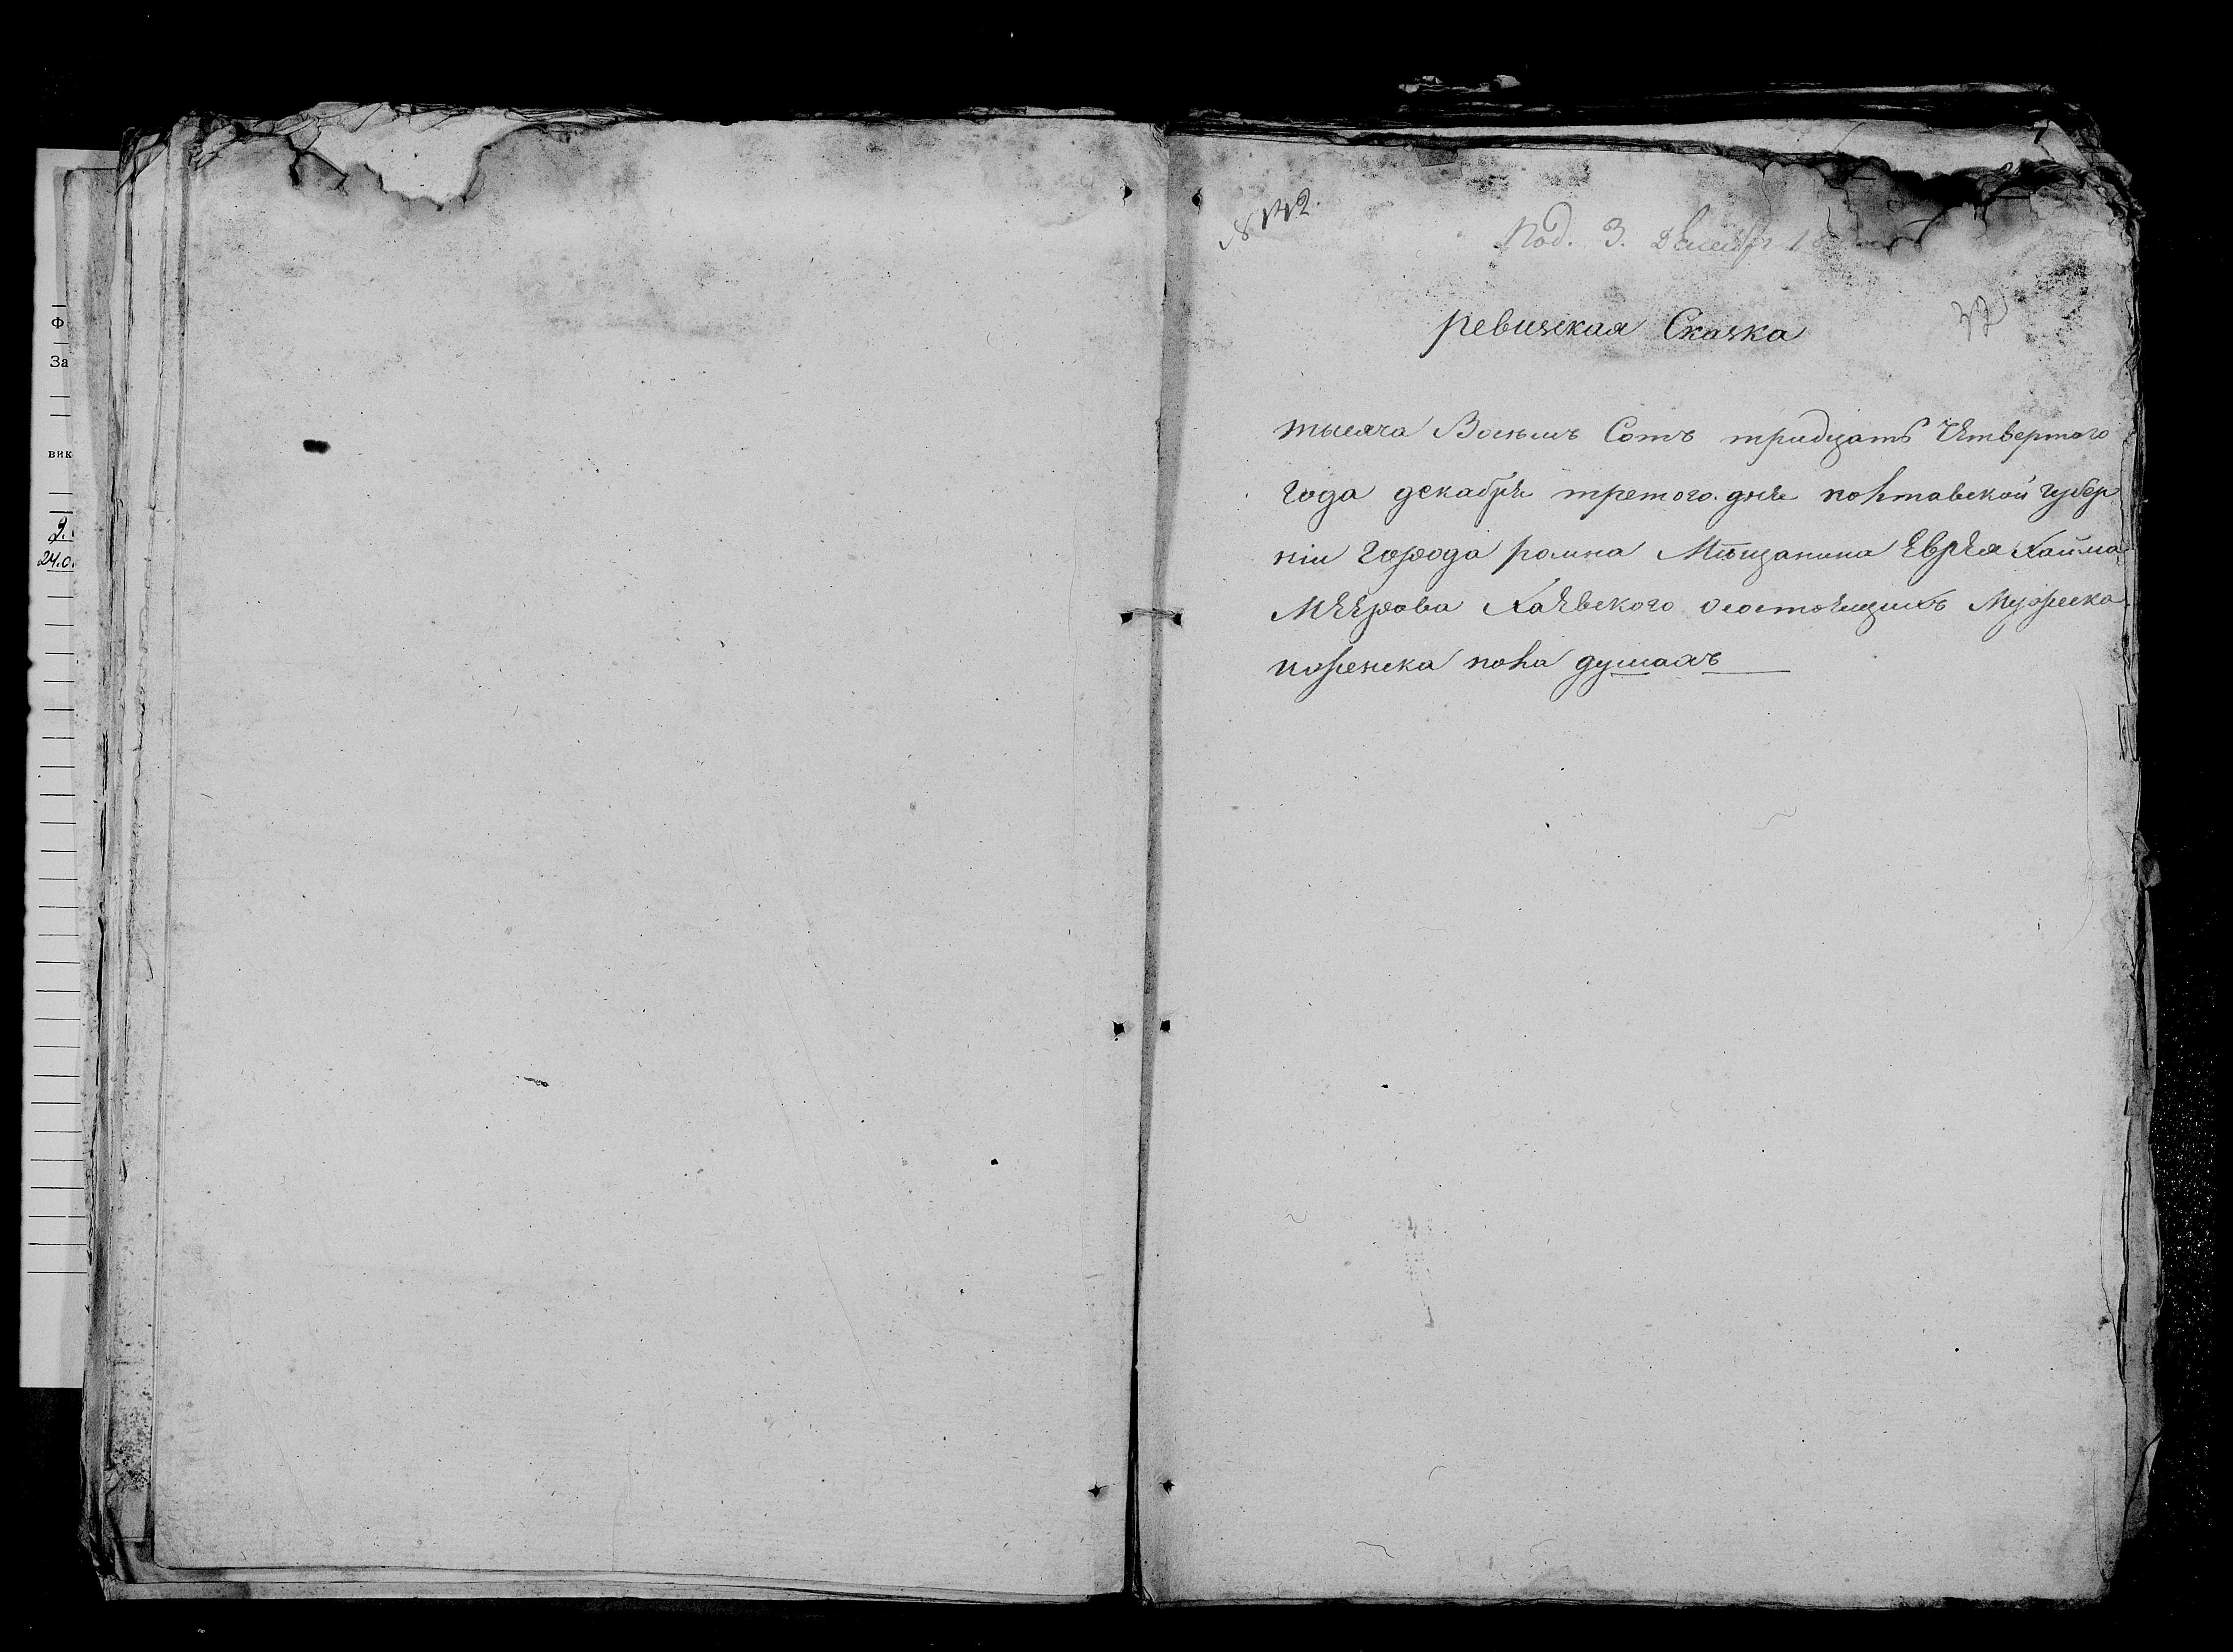 Ф
За
вик
24.0
7
Под. 3. Декабр 18
ревизская Сказка
тысяча Восемъ Сотъ тридцать Четвертого
года декабря третого дня полтавской губер
ніи Города ромна Мѣщанина Еврея Хайма
Меерова Хаевского о состоящихъ Мужеска
иженска пола душахъ